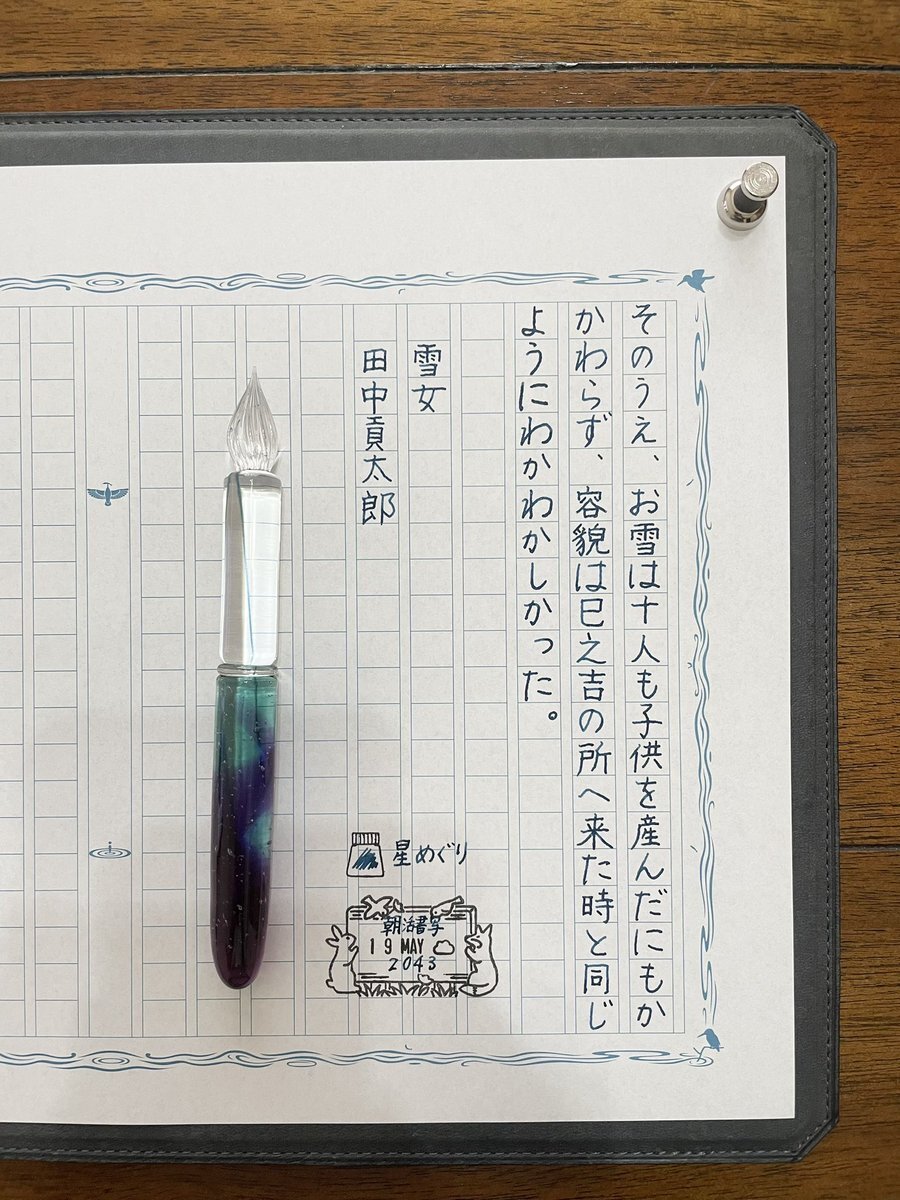 そのうえ、お雪は十人も子供を産んだにもか
かわらず、容貌は巳之吉の所へ来た時と同じ
ようにわかわかしかった。
雪女
田中貢太郎
星めぐり
朝活書写
19 MAY
2043